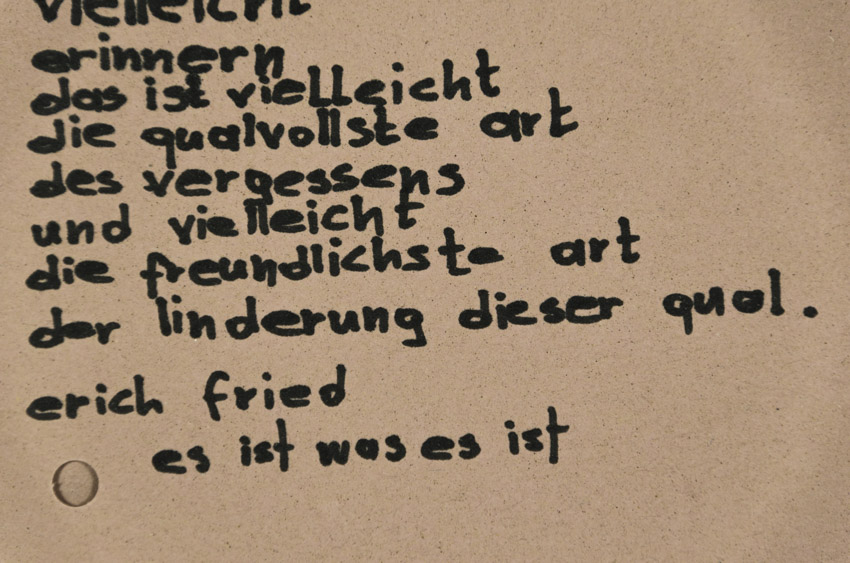 vielleicht
erinnern
das ist vielleicht
die qualvollste art
des vergessens
und vielleicht
die freundlichste art
der linderung dieser qual.
erich fried
es ist was es ist